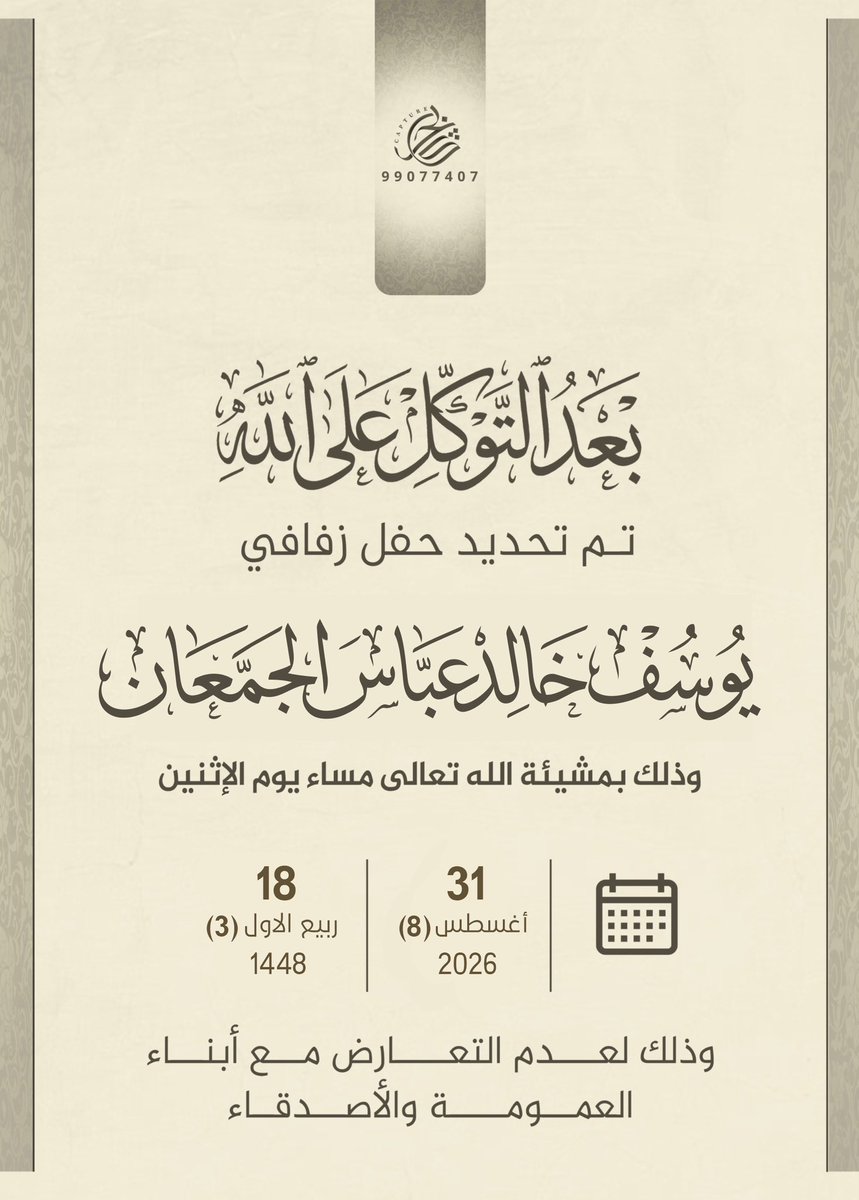 CAPTURE
99077407
بَعْدُ ٱلتَّوَكُّلِ عَلَى ٱللَّهِ
تم تحديد حفل زفافي
يُوسُفْ خَالِدْ عَبَّاسَ الجَمَّعَان
وذلك بمشيئة الله تعالى مساء يوم الإثنين
31
أغسطس (8)
2026
18
ربيع الاول (3)
1448
وذلك لعدم التعارض مع أبناء
العمومة والأصدقاء